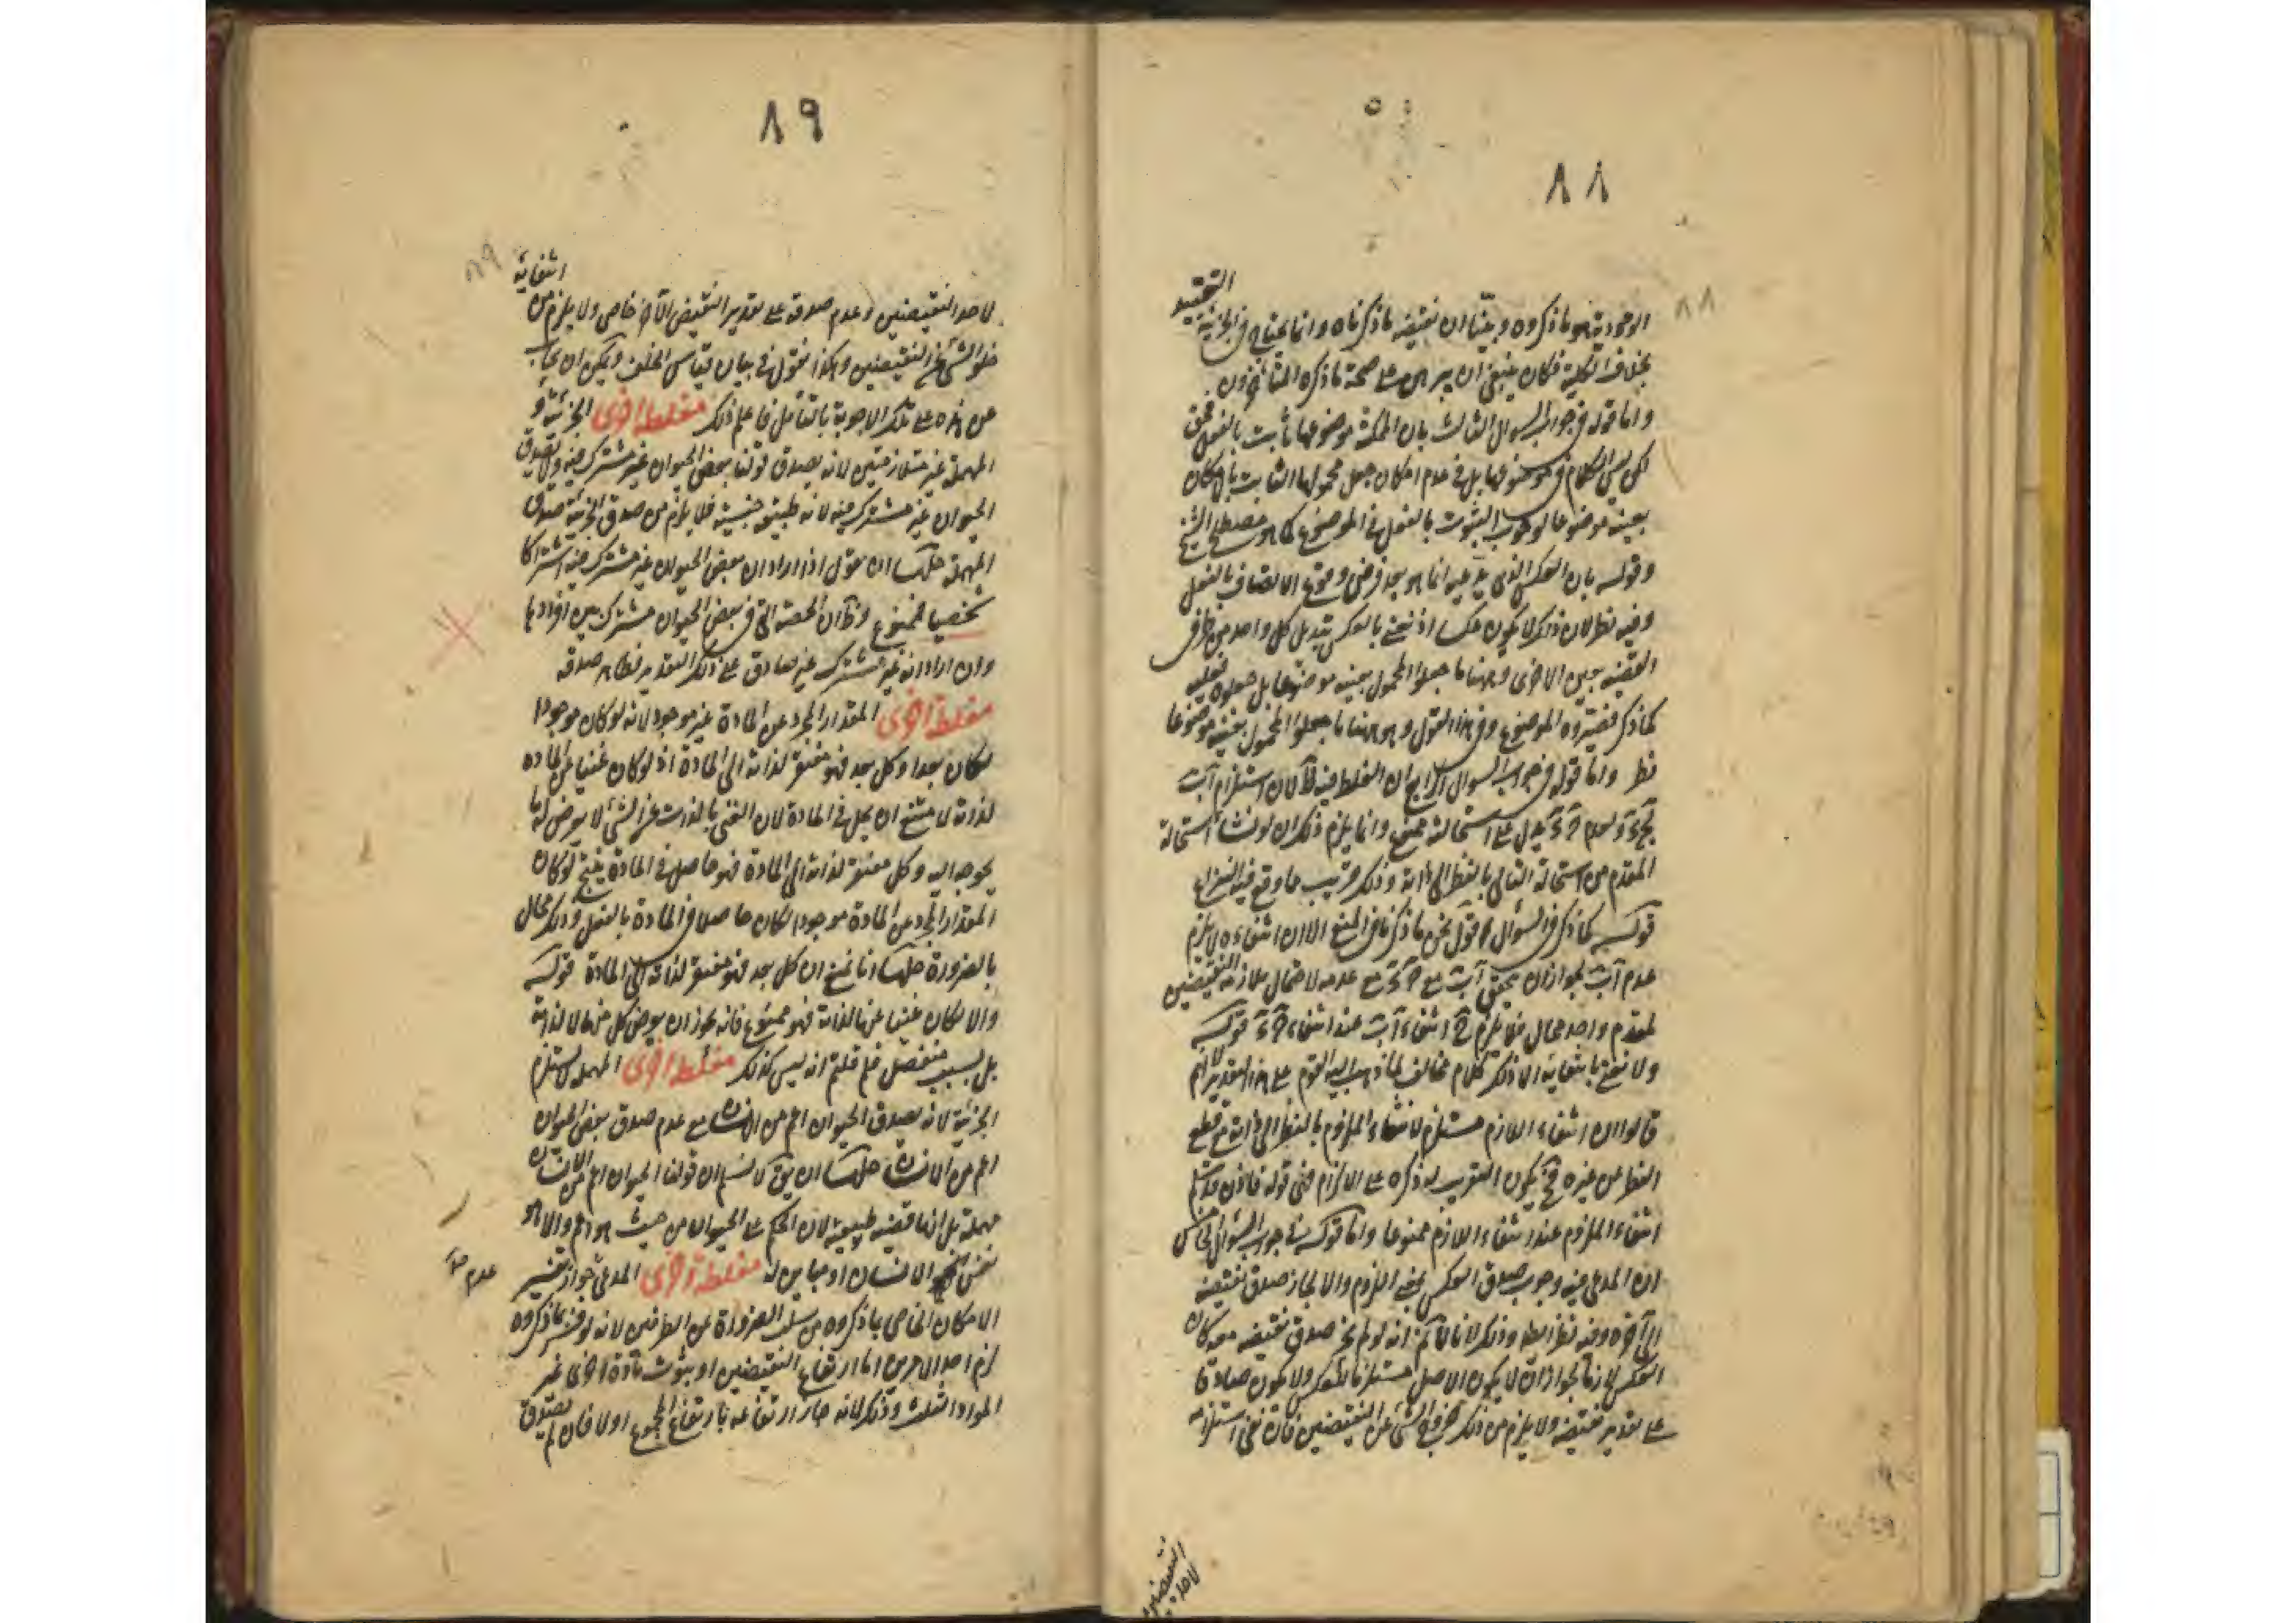 ٨٨
٨٨
التقييد
الوجودية هو ما ذكروه وبيّنا ان نقيضه ما ذكرناه وانما يحتاج في الجزئية
بخلاف الكلية فكان ينبغي ان يبرهن على صحة ما ذكره المتأخرون
واما قوله في جواب السوال الثالث بان الممكنة موضوعها ثابت بالفعل فحق
لكن ليس الكلام في موضوعها بل في عدم امكان جعل محمولها الثابت بالامكان
بعينه موضوعا لوجوب الثبوت بالفعل في الموضوع كما هو مصطلح الشيخ
وقوله بان العكس الذي يدعيه انما هو بعد فرض وقوع الاتصاف بالفعل
وفيه نظر لان ذلك لا يكون عكسا اذ نعني بالعكس تبديل كل واحد من طرفي
القضية بعين الاخرى وههنا ما جعلوا المحمول بعينه موضوعا بل جعلوه
وفي هذا القول وهو ههنا ما جعلوا المحمول بعينه موضوعا
نظر واما قوله في جواب السوال الرابع ان الغلط فيه استلزام
استحالة ممنوع وانما يلزم ذلك ان لو نشأ استحالة
المقدم من استحالة التالي بالنظر الى ذاته وذلك قريب مما وقع فيه النزاع
قوله كما ذكر في السؤال اقول نحن ما ذكرنا في المنع الا ان انتفاءه لا يلزم
عدم لجواز ان يتحقق على عدمه لاحتمال ملازمة النقيضين
لمقدم واحد محال فلا يلزم انتفاء عند انتفاء قوله
ولا نعني بانتفائه الا ذلك كلام مخالف لما ذهب اليه القوم على هذا التقدير لانهم
قالوا ان انتفاء اللازم مستلزم لانتفاء الملزوم بالنظر الى ذاته مع قطع
النظر عن غيره فح يكون التقريب لما ذكره على الالزام في قوله فاذن قد يستلزم
انتفاء الملزوم عند انتفاء اللازم ممنوعا واما قوله في جواب السوال الخامس
ان المدعى فيه وجوب صدق العكس بمعنى اللزوم والا لجاز صدق نقيضه
الى آخره وفيه نظر ايضا وذلك لانا لانم انه لو لم يجز صدق نقيضه معه كان
العكس لازما لجواز ان لا يكون الاصل مستلزما للعكس ولا يكون صادقا
على تقدير نقيضه ولا يلزم من ذلك خروج الشئ عن النقيضين فان نفي استلزامه
لاحد النقيضين
٨٩
٨٩
انتفائه
لاحد النقيضين وعدم صدقه على تقدير النقيض الآخر خاص ولا يلزم من
خلو الشئ عن النقيضين وهكذا نقول في بيان قياس الخلف ويمكن ان يجاب
عن هذه على تلك الاجوبة بالتأمل فاعلم ذلك مغلطة اخرى الجزئية و
المهملة غير متلازمتين لانه يصدق قولنا بعض الحيوان غير مشترك فيه ولا يصدق
الحيوان غير مشترك فيه لانه طبيعة جنسية فلا يلزم من صدق الجزئية صدق
المهملة حلها ان نقول اذا اراد ان بعض الحيوان غير مشترك فيه اشتراكا
شخصيا فممنوع لان الحصة التي في بعض الحيوان مشترك بين افرادها
وان اراد انه غير مشترك غير صادق على ذلك التقدير فظاهر صدقه
مغلطة اخرى المقدار المجرد عن المادة غير موجود لانه لو كان موجودا
لكان بعدا وكل بعد فهو مفتقر لذاته الى المادة اذ لو كان غنيا عن المادة
لذاته لامتنع ان يحل في المادة لان الغني بالذات عن الشئ لا يعرض له ما
يحوجه اليه وكل مفتقر لذاته الى المادة فهو حاصل في المادة ينتج لو كان
المقدار المجرد عن المادة موجودا لكان حاصلا في المادة بالفعل وذلك محال
بالضرورة حلها انا نمنع ان كل بعد فهو مفتقر لذاته الى المادة قوله
والا لكان غنيا عنها لذاته فهو ممنوع فانه يجوز ان يعرض كل منهما لا لذاته
بل بسبب منفصل فلم قلتم انه ليس كذلك مغلطة اخرى المهملة لا تستلزم
الجزئية لانه يصدق الحيوان اعم من الانسان مع عدم صدق بعض الحيوان
اعم من الانسان حلها ان يقال لا نسلم ان قولنا الحيوان اعم من الانسان
مهملة بل انها قضية طبيعية لان الحكم على الحيوان من حيث هو اعم والا هو
نفس الانسان او مباين له مغلطة اخرى المدعى جواز تفسير
عدم
الامكان الخاص بما ذكروه من سلب الضرورة عن الطرفين لانه لو فسر بما ذكروه
لزم احد الامرين اما ارتفاع النقيضين او ثبوت مادة اخرى غير
المواد الثلث وذلك لانه جاز ارتفاعه بارتفاع المجموع اولا فان لم يصدق